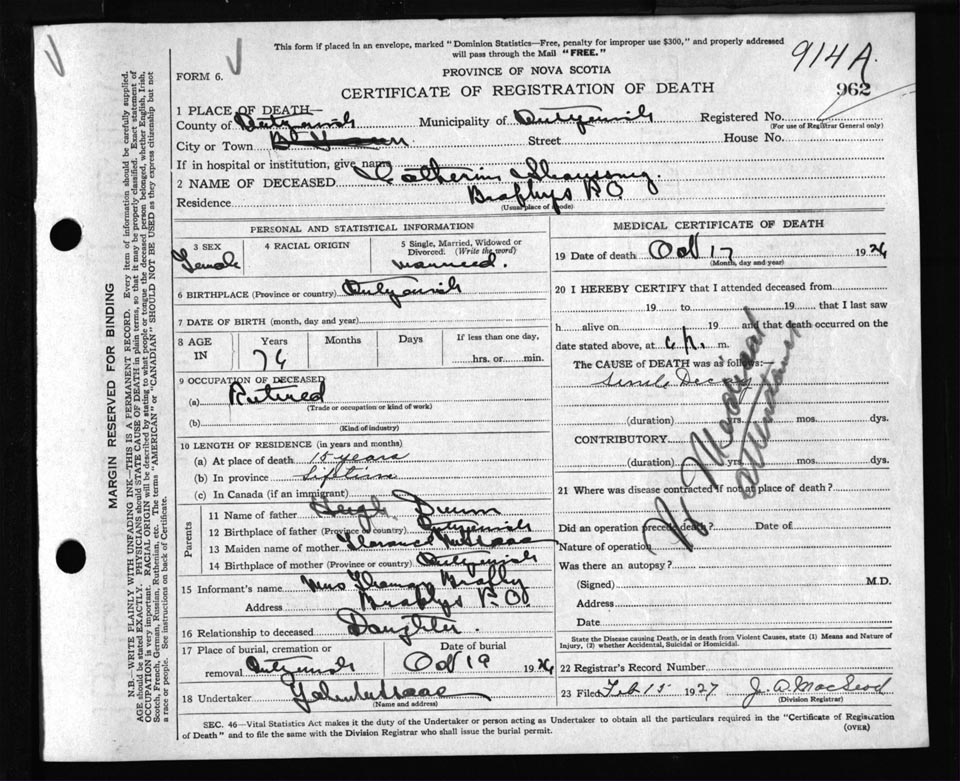 This form if placed in an envelope, marked "Dominion Statistics—Free, penalty for improper use $300," and properly addressed
will pass through the Mail "FREE."
914A.
FORM 6.
PROVINCE OF NOVA SCOTIA
CERTIFICATE OF REGISTRATION OF DEATH
962
1 PLACE OF DEATH—
County of Antigonish Municipality of Antigonish Registered No.
(For use of Registrar General only)
City or Town Street House No.
If in hospital or institution, give name
2 NAME OF DECEASED Catherine
Residence Brophys P.O
(Usual place of abode)
PERSONAL AND STATISTICAL INFORMATION
3 SEX 4 RACIAL ORIGIN 5 Single, Married, Widowed or
Divorced. (Write the word)
Female married.
6 BIRTHPLACE (Province or country) Antigonish
7 DATE OF BIRTH (month, day and year)
8 AGE IN Years Months Days If less than one day,
76 hrs. or min.
9 OCCUPATION OF DECEASED
(a) Retired
(Trade or occupation or kind of work)
(b)
(Kind of industry)
10 LENGTH OF RESIDENCE (in years and months)
(a) At place of death 15 years
(b) In province Lifetime
(c) In Canada (if an immigrant)
Parents
11 Name of father Hugh
12 Birthplace of father (Province or country) Antigonish
13 Maiden name of mother McIsaac
14 Birthplace of mother (Province or country) Antigonish
15 Informant's name Mrs Thomas Brophy
Address Brophys P.O.
16 Relationship to deceased Daughter.
17 Place of burial, cremation or Date of burial
removal Antigonish Oct 19 1926
18 Undertaker McIsaac
(Name and address)
MEDICAL CERTIFICATE OF DEATH
19 Date of death Oct 17 1926
(Month, day and year)
20 I HEREBY CERTIFY that I attended deceased from
19 to 19 that I last saw
h alive on 19 and that death occurred on
date stated above, at 6 P. m.
The CAUSE OF DEATH was as follows:—
Senile Decay
No Medical
attendance
(duration) yrs. mos. dys.
CONTRIBUTORY
(duration) yrs. mos. dys.
21 Where was disease contracted if not at place of death?
Did an operation precede death? Date of
Nature of operation
Was there an autopsy?
(Signed) M.D.
Address
Date
State the Disease causing Death, or in death from Violent Causes, state (1) Means and Nature of
Injury, (2) whether Accidental, Suicidal or Homicidal.
22 Registrar's Record Number
23 Filed Feb 15 1927 J. A. MacLeod
(Division Registrar)
SEC. 46—Vital Statistics Act makes it the duty of the Undertaker or person acting as Undertaker to obtain all the particulars required in the "Certificate of Registration
of Death" and to file the same with the Division Registrar who shall issue the burial permit.
(OVER)
MARGIN RESERVED FOR BINDING
N.B.—WRITE PLAINLY WITH UNFADING INK—THIS IS A PERMANENT RECORD. Every item of information should be carefully supplied.
AGE should be stated EXACTLY. PHYSICIANS should STATE CAUSE OF DEATH in plain terms, so that it may be properly classified. Exact statement of
OCCUPATION is very important. RACIAL ORIGIN will be described by stating to what people or tongue the deceased person belonged, whether English, Irish,
Scotch, French, German, Russian, Ruthenian, etc. The terms "AMERICAN" or "CANADIAN" SHOULD NOT BE USED as they express citizenship but not
a race or people. See instructions on back of Certificate.